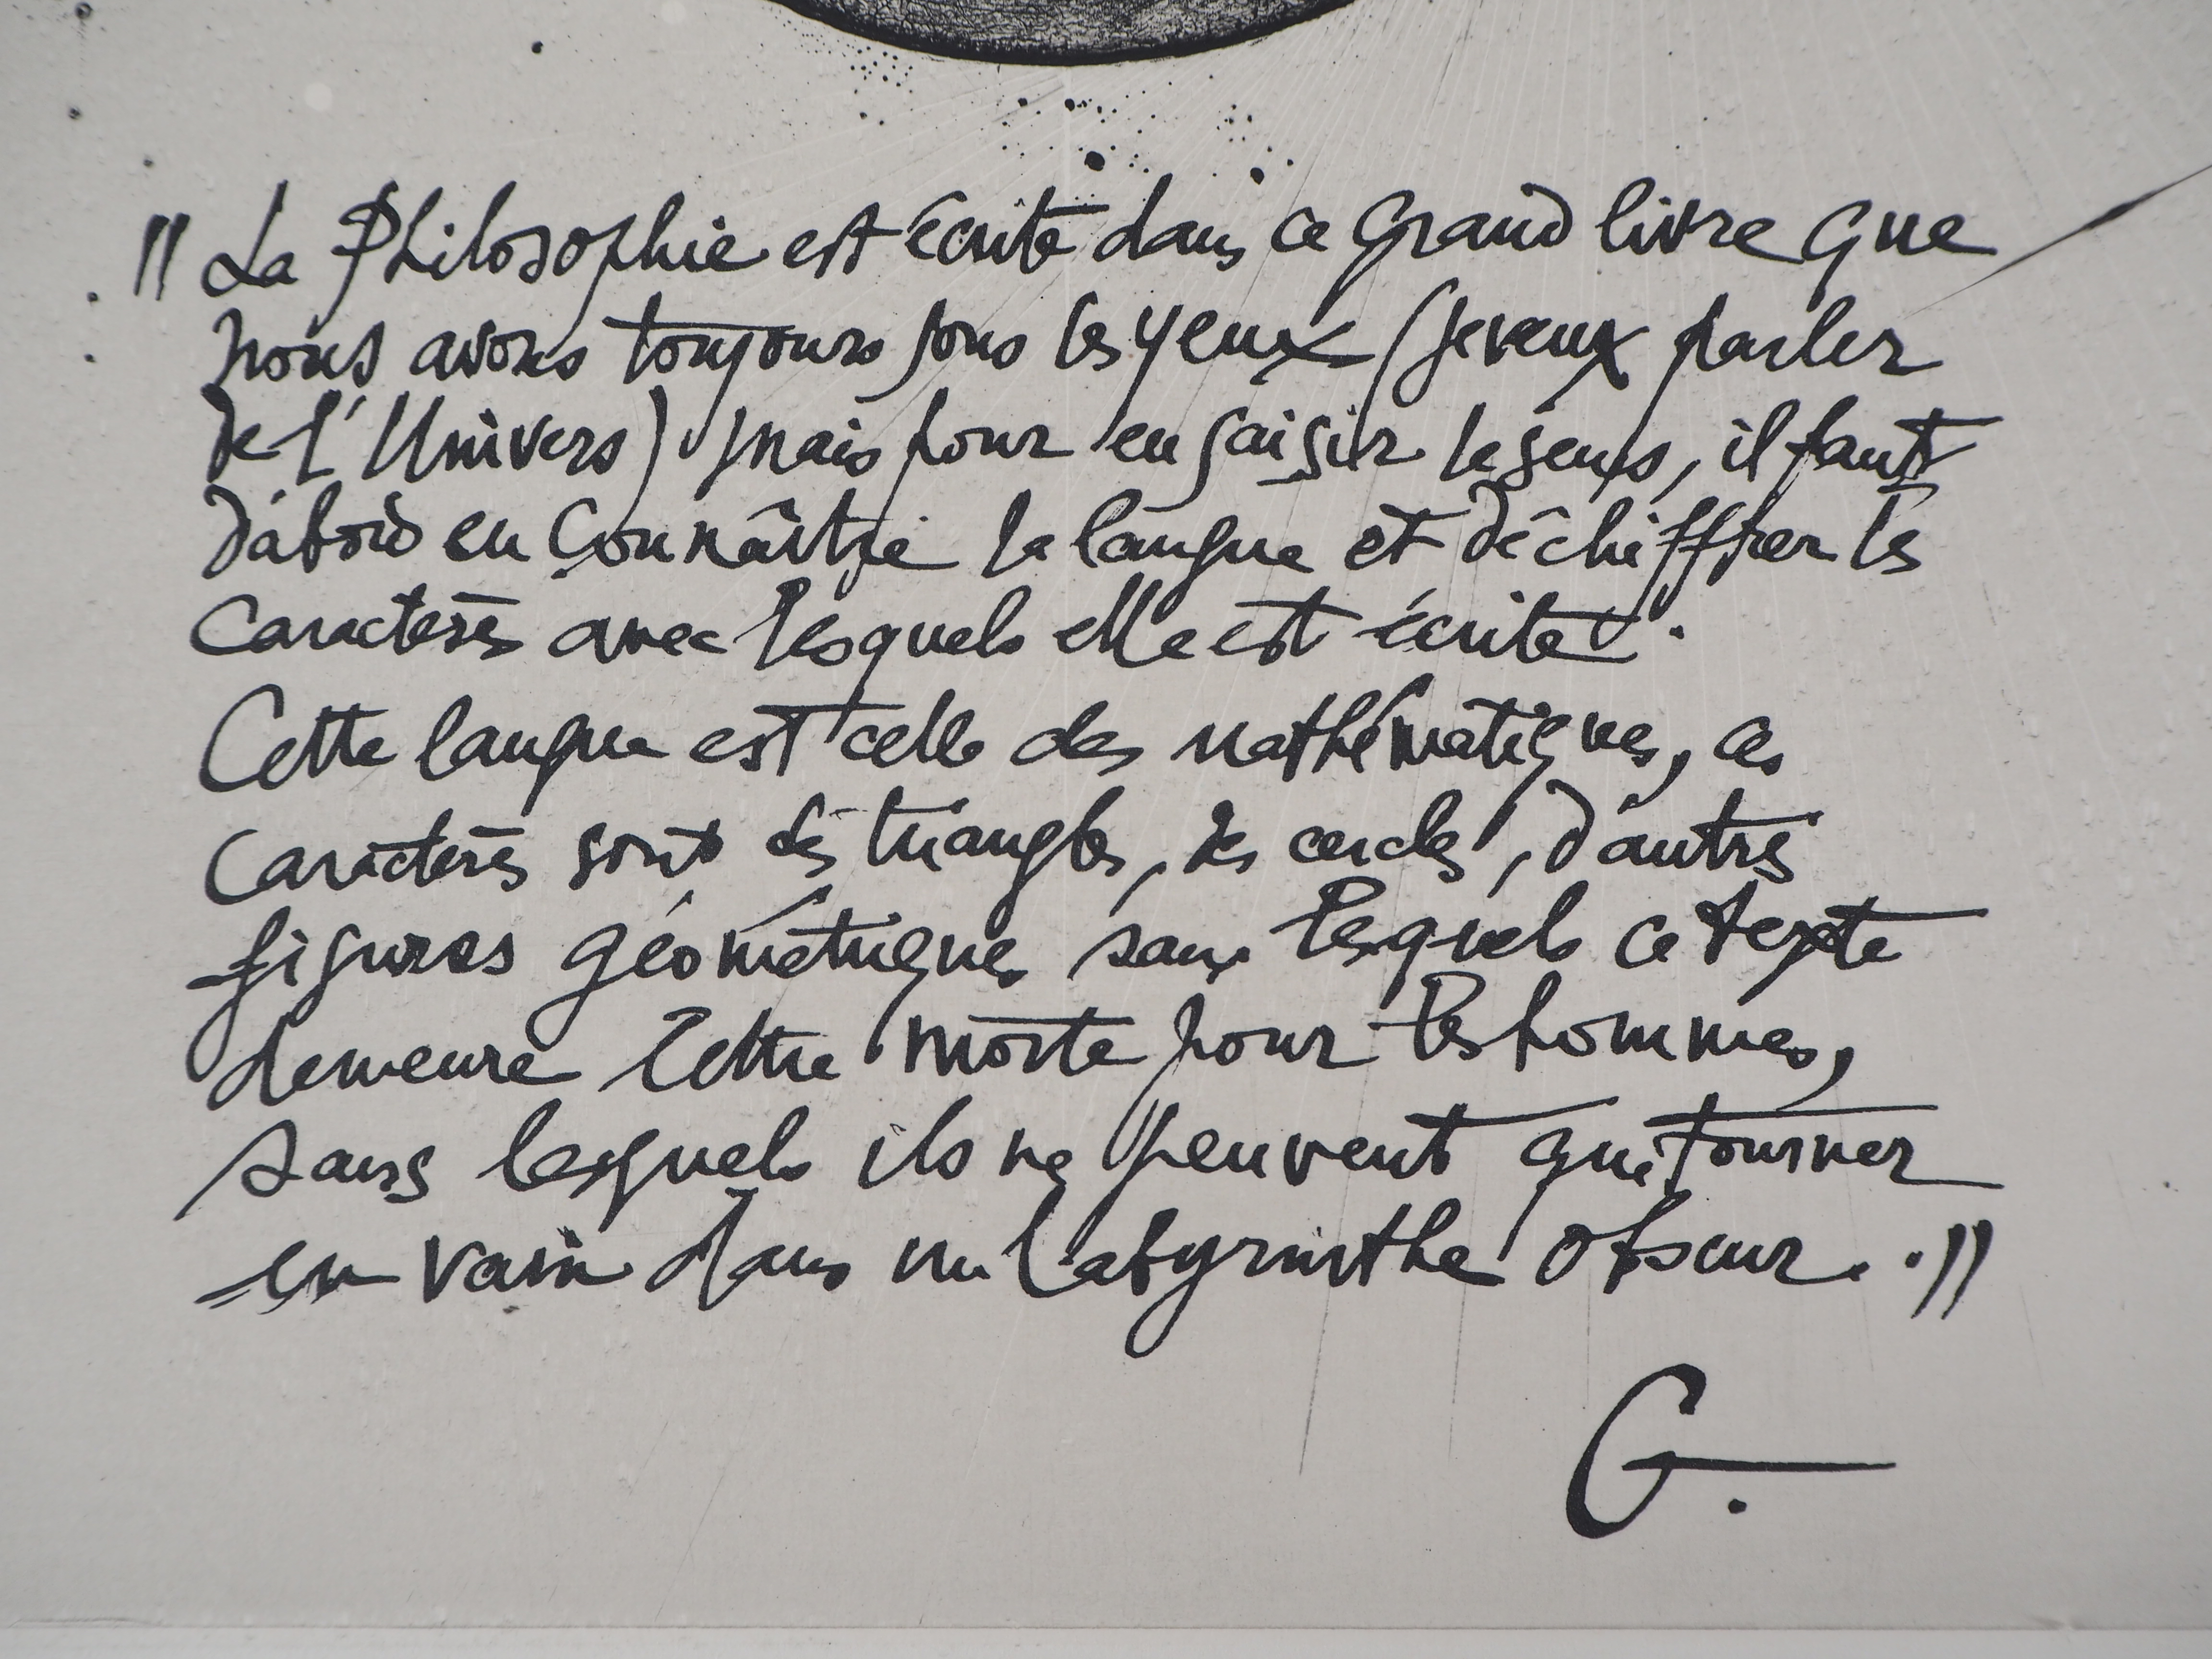 " La Philosophie est écrite dans ce Grand livre que
nous avons toujours sous les yeux (je veux parler
de l'Univers) mais pour en saisir le sens, il faut
d'abord en Connaître la langue et déchiffrer les
Caractères avec lesquels elle est écrite.
Cette langue est celle des mathématiques, ces
Caractères sont des triangles, des cercles, d'autres
figures géométriques sans lesquels ce texte
demeure lettre morte pour les hommes,
sans lesquels ils ne peuvent qui tourner
en vain dans un Labyrinthe obscur. "
G.